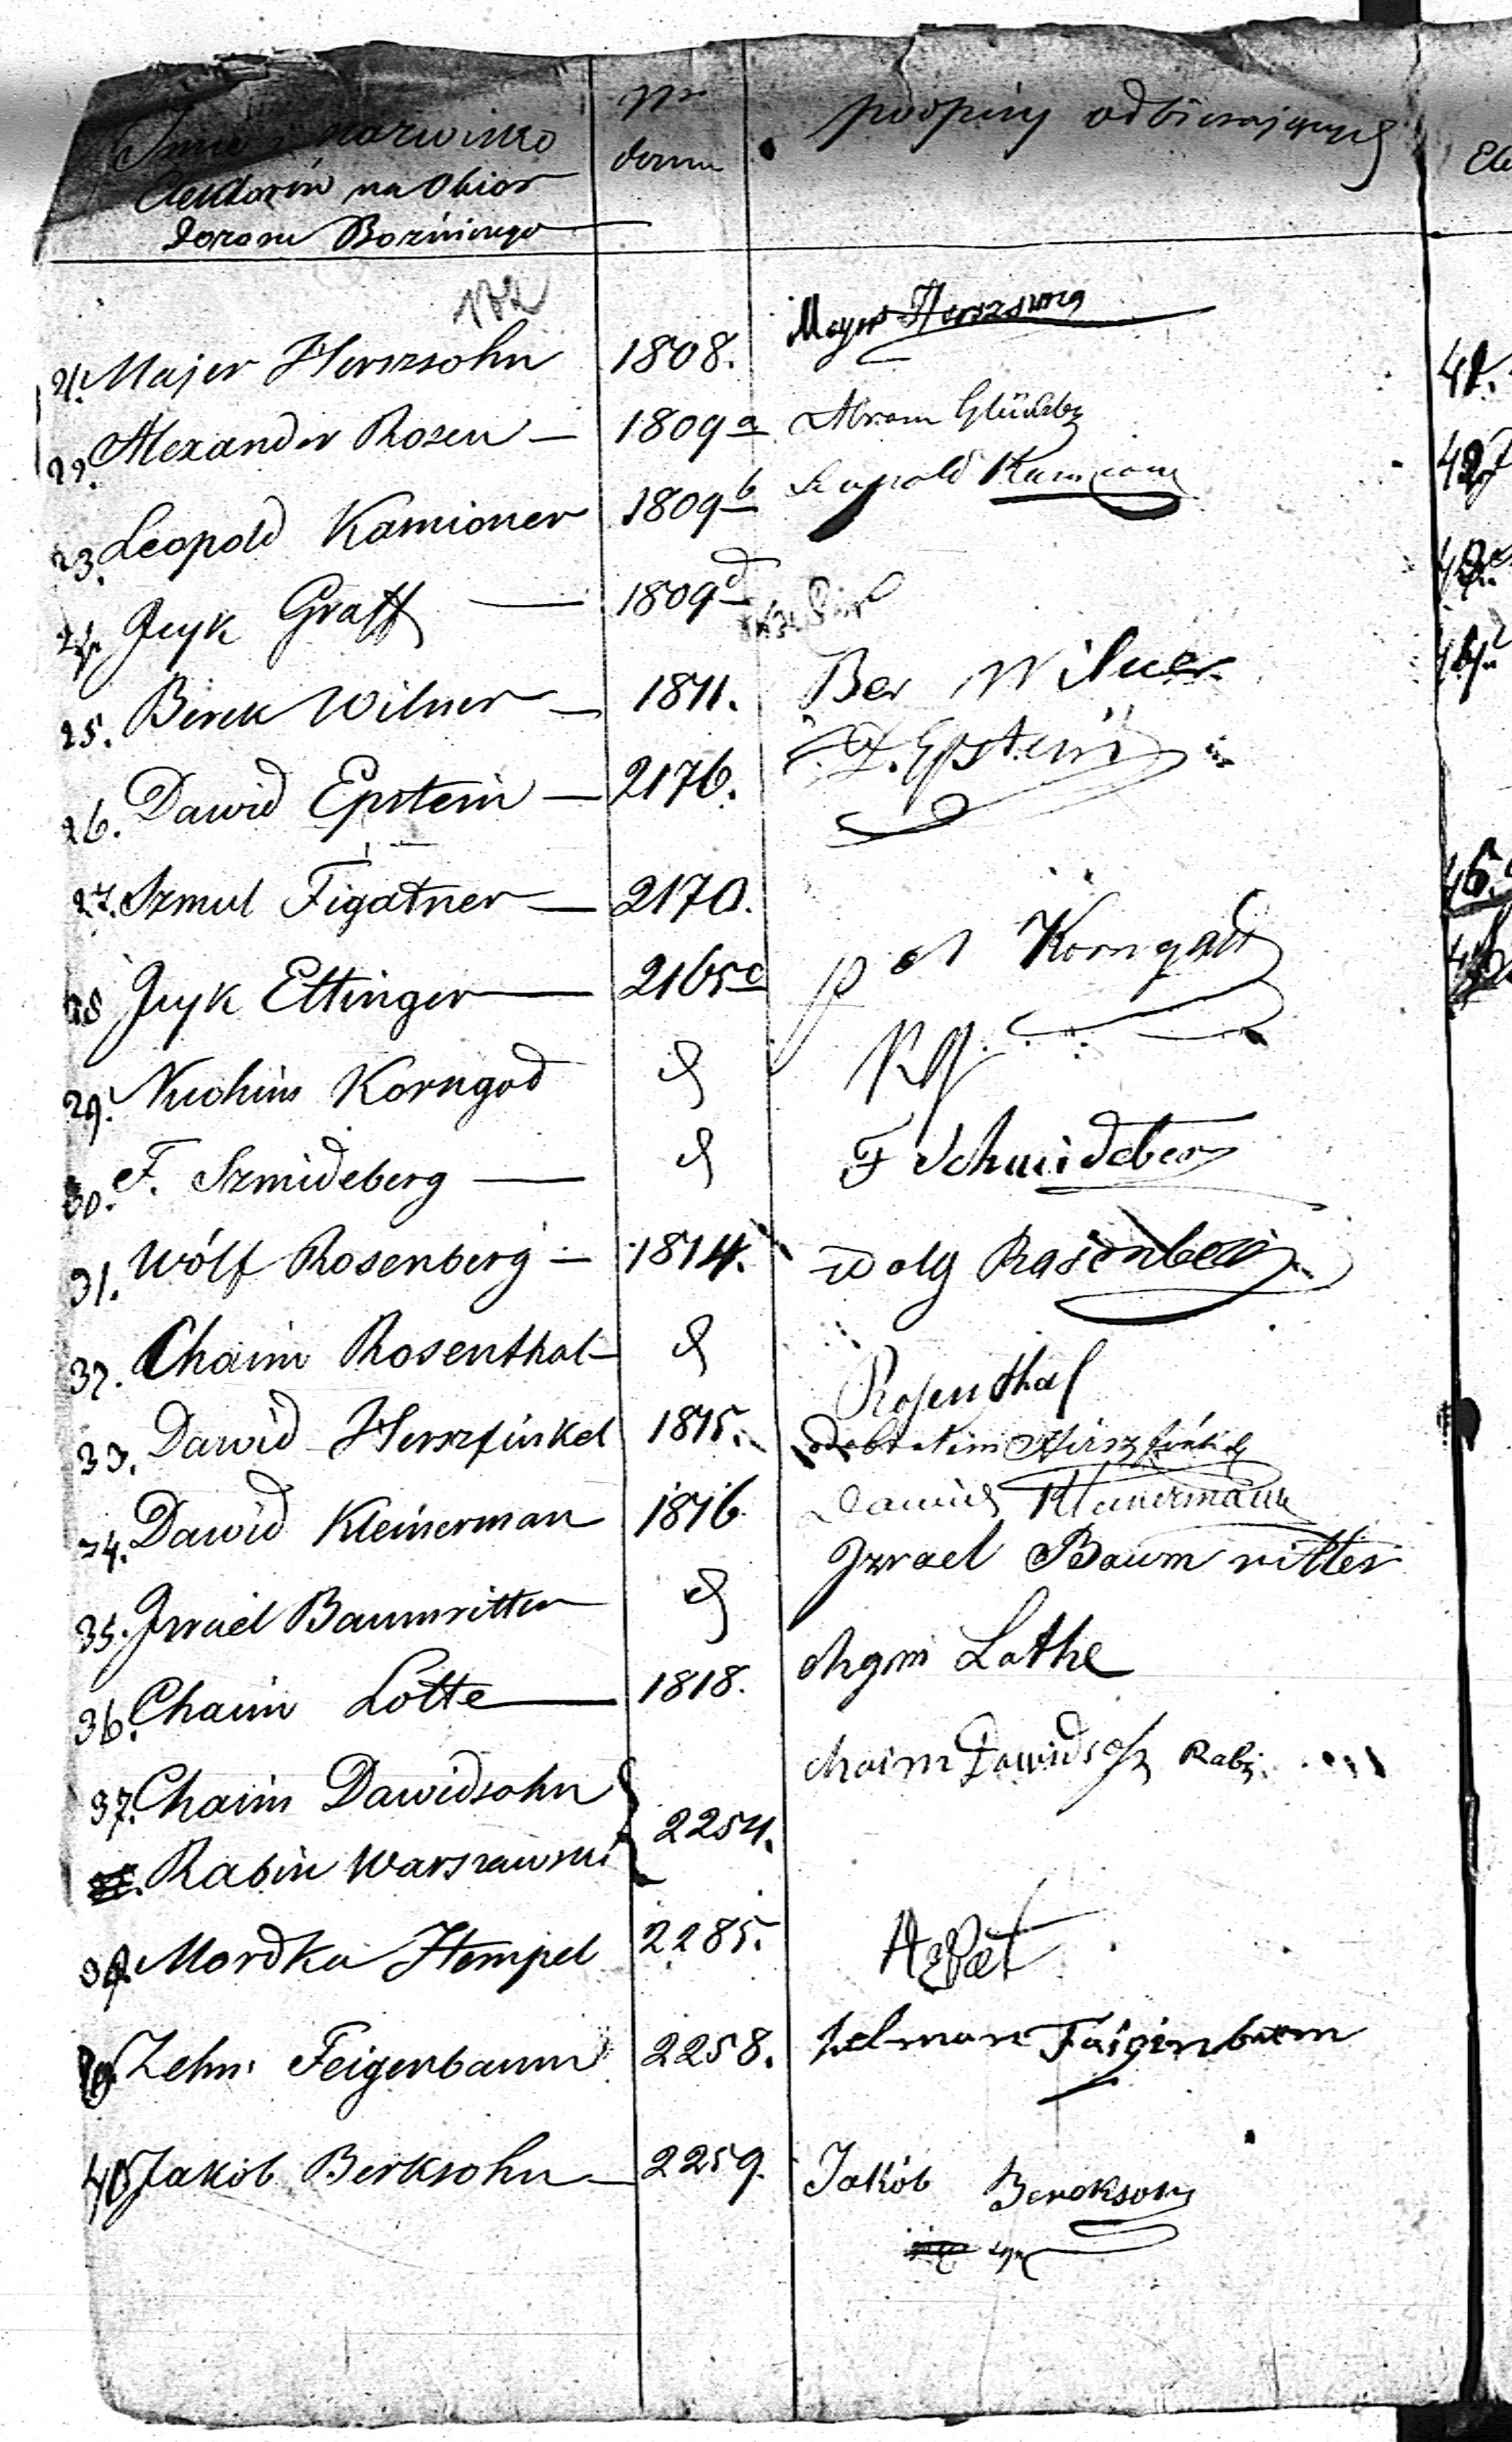 Imie i nazwisko
Elektorów na Obior
Dozoru Bożniczego
Nr
domu
podpisy odbierających
21. Majer Herszsohn 1808. Majer Herszong
22. Alexander Rosen — 1809 a Abram
23. Leopold Kamioner 1809 b Leopold
24. Icyk Graff — 1809 d
25. Berek Wilner — 1811. Ber Wilner
26. Dawid Epstein — 2176. D. Epstein
27. Szmul Figatner — 2170.
28 Icyk Ettinger — 2165 c
29. Nuchim Korngod Korngold
30. F. Szmideberg — F Schmideberg
31. Wólf Rosenberg — 1814. Wolg Rasenberg
32. Chaim Rosenthal — Rosenthal
33. Dawid Herszfinkel 1815. Hirszfinkel
34. Dawid Kleinerman 1816 Dawid Kleinermann
35. Izrael Baumritter Izrael Baumritter
36. Chaim Lotte — 1818. Lothe
37. Chaim Dawidsohn Chaim Dawidsohn Rabi.
Rabin Warszawski 2254.
Mordka Hempel 2285.
Zelm. Feigenbaum 2258. Zelman Faigenbaum
40 Jakób Berksohn — 2259. Jakób Berekson